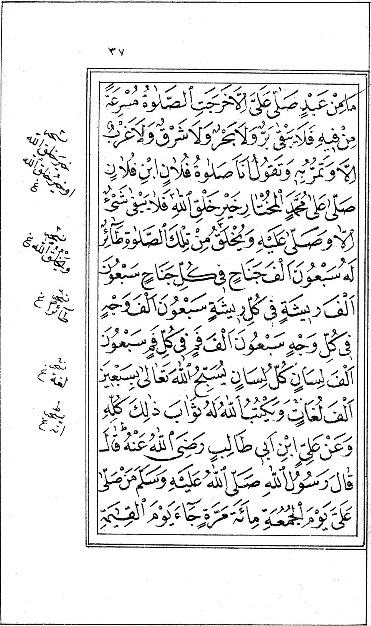 ٣٧
مَا مِنْ عَبْدٍ صَلّٰى عَلَيَّ اِلَّا خَرَجَتِ الصَّلٰوةُ مُسْرِعَةً
مِنْ فِيهِ فَلَا يَبْقٰى بَرٌّ وَلَا بَحْرٌ وَلَا شَرْقٌ وَلَا غَرْبٌ
اِلَّا وَتَمُرُّ بِهٖ وَتَقُولُ اَنَا صَلٰوةُ فُلَانِ ابْنِ فُلَانٍ
صَلّٰى عَلٰى مُحَمَّدٍ الْمُخْتَارِ خَيْرِ خَلْقِ اللّٰهِ فَلَا يَبْقٰى شَيْءٌ
اِلَّا وَصَلّٰى عَلَيْهِ وَيُخْلَقُ مِنْ تِلْكَ الصَّلٰوةِ طَائِرٌ
لَهُ سَبْعُونَ اَلْفَ جَنَاحٍ فِي كُلِّ جَنَاحٍ سَبْعُونَ
اَلْفَ رِيشَةٍ فِي كُلِّ رِيشَةٍ سَبْعُونَ اَلْفَ وَجْهٍ
فِي كُلِّ وَجْهٍ سَبْعُونَ اَلْفَ فَمٍ فِي كُلِّ فَمٍ سَبْعُونَ
اَلْفَ لِسَانٍ كُلُّ لِسَانٍ يُسَبِّحُ اللّٰهَ تَعَالٰى بِسَبْعِينَ
اَلْفَ لُغَاتٍ وَيَكْتُبُ اللّٰهُ لَهُ ثَوَابَ ذٰلِكَ كُلِّهٖ
وَعَنْ عَلِيِّ ابْنِ اَبِي طَالِبٍ رَضِيَ اللّٰهُ عَنْهُ قَالَ
قَالَ رَسُولُ اللّٰهِ صَلَّى اللّٰهُ عَلَيْهِ وَسَلَّمَ مَنْ صَلّٰى
عَلَيَّ يَوْمَ الْجُمُعَةِ مِائَةَ مَرَّةٍ جَاءَ يَوْمَ الْقِيٰمَةِ